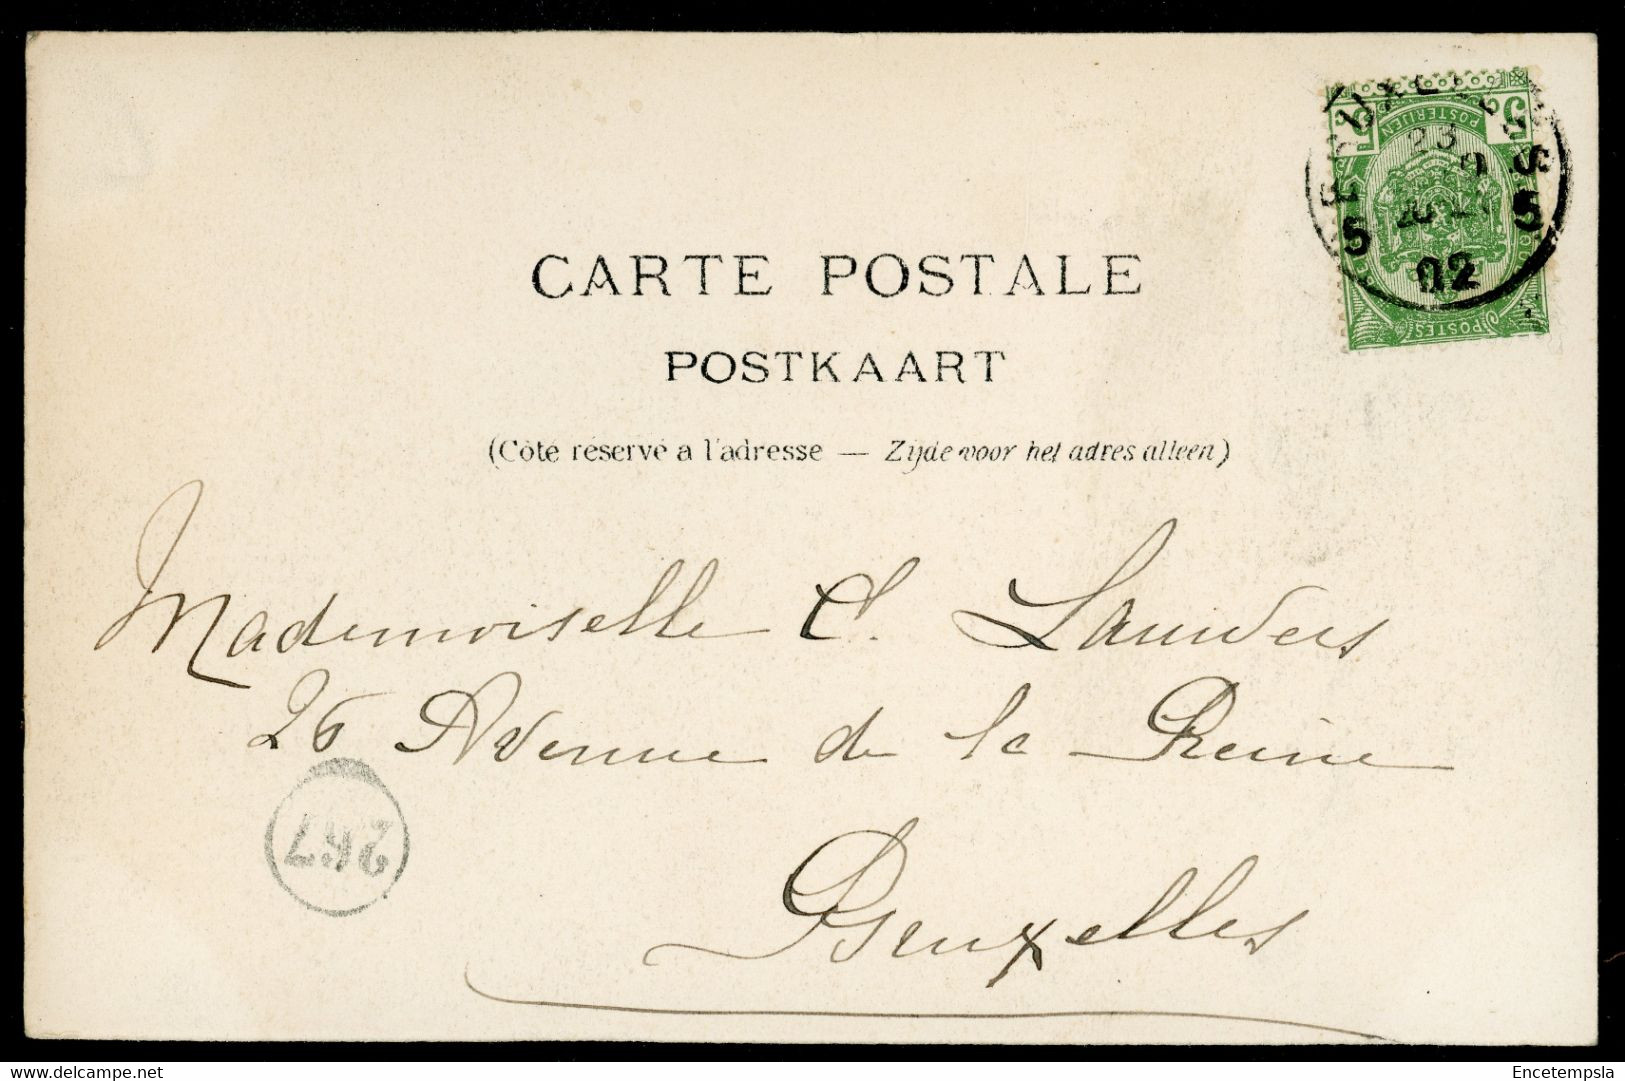 CARTE POSTALE
POSTKAART
(Côté réservé a l'adresse — Zijde voor het adres alleen)
5c POSTERIJEN 5c
BRUXELLES
23
5 5
02
POSTES
Mademoiselle C. Lauwers
26 Avenue de la Reine
267
Bruxelles
delcampe.net
Encetempsla